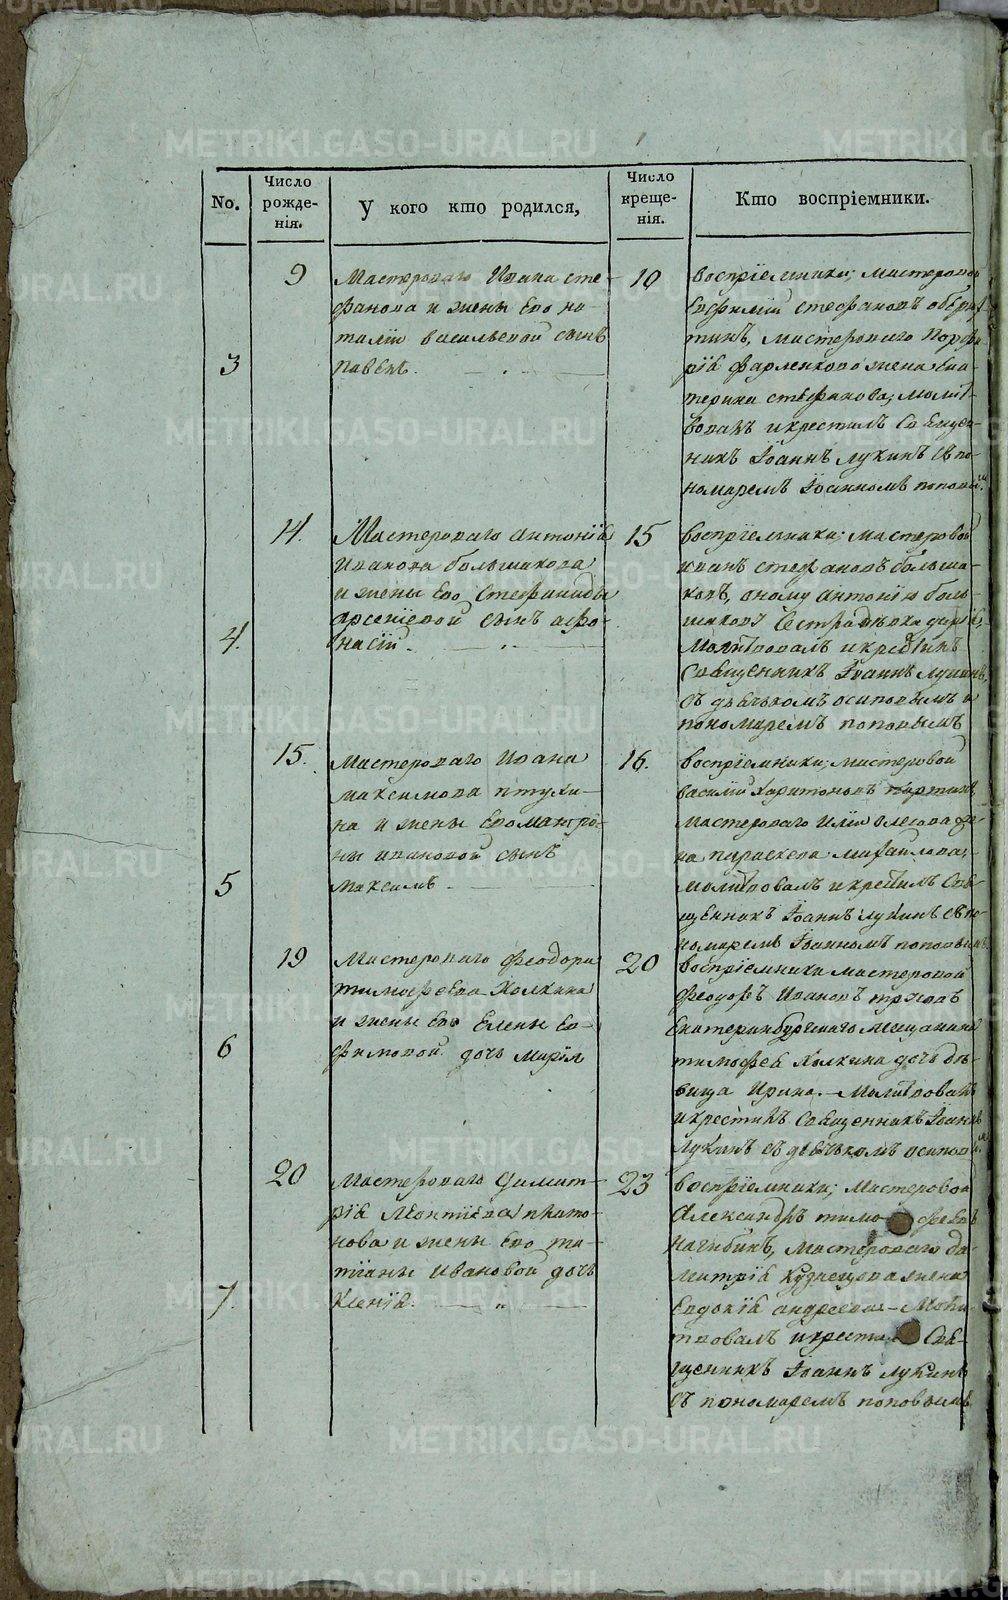 No.
Число рожде-
нія.
У кого кто родился,
Число креще-
нія.
Кто воспріемники.
3
9
Мастероваго Ивана Сте-
фанова и жены Его на-
таліи васильевой сынъ
павелъ.
10
воспріемники; мастеровой
Ефимій стефановъ
тинъ, мастероваго Порфи-
рія жена Ека-
терина стефанова; молит-
вовалъ и крестилъ Священ-
никъ Іоаннъ Лукинъ съ по-
номаремъ Іоанномъ поповымъ.
4.
14.
Мастероваго антонія
иванова большакова
и жены Его Стефаниды
арсеніевой сынъ афо-
насій.
15
воспріемники; мастеровой
иванъ стефановъ больша-
ковъ, оному антонію боль-
шакову Сестра дѣвка
Молитвовалъ и крестилъ
Священникъ Іоаннъ Лукинъ,
съ дьячкомъ осиповымъ и
пономаремъ поповымъ
5
15.
Мастероваго Ивана
максимова птухи-
на и жены Его матро-
ны ивановой сынъ
максимъ
16.
воспріемники; мастеровой
василій харитоновъ
мастероваго Иліи же-
на параскева михайлова;
молитвовалъ и крестилъ Свя-
щенникъ Іоаннъ Лукинъ съ по-
номаремъ Іоанномъ поповымъ
6
19
Мастероваго феодора
тимофеева Холкина
и жены Его Елены Ев-
фимовой дочь марія
20
воспріемники мастеровой
феодоръ Ивановъ
Екатеринбургскаго мещанина
тимофея Холкина дочь дѣ-
вица Ирина. Молитвовалъ
и крестилъ Священникъ Іоаннъ
Лукинъ съ дьячкомъ осиповымъ
7.
20
Мастероваго Димит-
рія Леонтіева плато-
нова и жены Его та-
тіаны Ивановой дочь
Ксенія.
23
воспріемники; Мастеровой
Александръ тимофеевъ
нагибинъ, Мастероваго Ди-
митрія Кузнецова жена
Евдокія андреева Моли-
твовалъ и крестилъ Свя-
щенникъ Іоаннъ Лукинъ
съ пономаремъ поповымъ
METRIKI.GASO-URAL.RU